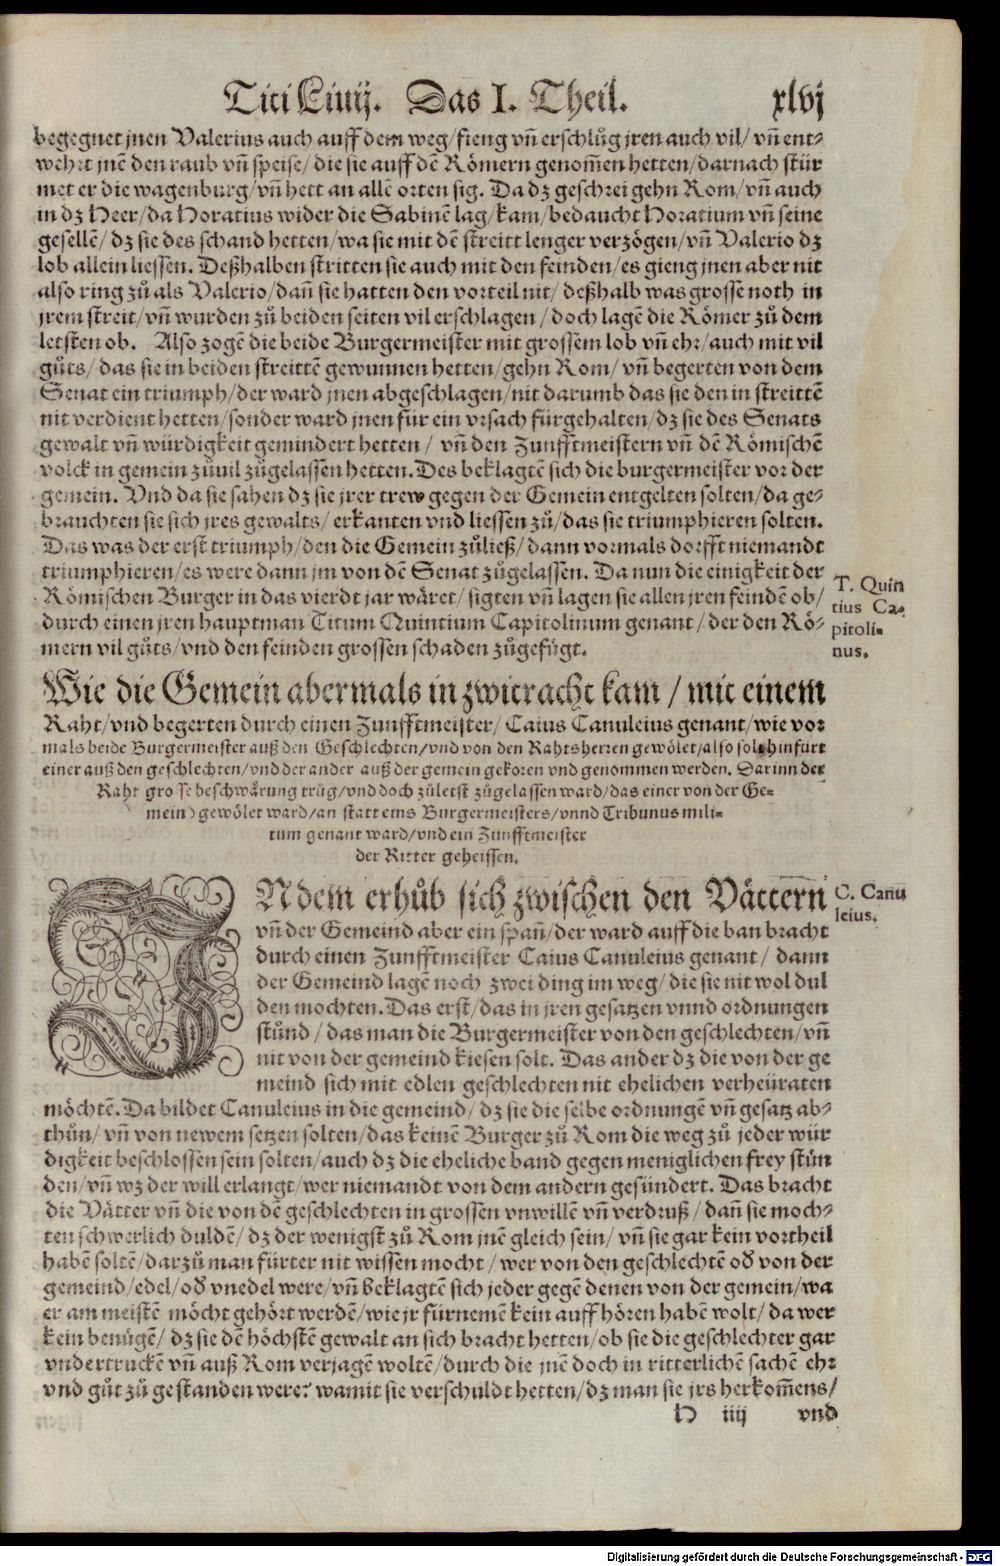 Titi Liuij. Das I. Theil. xlvj
begegnet jnen Valerius auch auff dem weg/ fieng vñ erschlůg jren auch vil/ vñ ent-
wehrt jnē den raub vñ speise/ die sie auff dē Römern genom̃en hetten/ darnach stür
met er die wagenburg/ vñ hett an allē orten sig. Da dz geschrei gehn Rom/ vñ auch
in dz Heer/ da Horatius wider die Sabinē lag/ kam/ bedaucht Horatium vñ seine
gesellē/ dz sie des schand hetten/ wa sie mit dē streitt lenger verzögen/ vñ Valerio dz
lob allein liessen. Deßhalben stritten sie auch mit den feinden/ es gieng jnen aber nit
also ring zů als Valerio/ dañ sie hatten den vorteil nit/ deßhalb was grosse noth in
jrem streit/ vñ wurden zů beiden seiten vil erschlagen/ doch lagē die Römer zů dem
letsten ob. Also zogē die beide Burgermeister mit grossem lob vñ ehr/ auch mit vil
gůts/ das sie in beiden streittē gewunnen hetten/ gehn Rom/ vñ begerten von dem
Senat ein triumph/ der ward jnen abgeschlagen/ nit darumb das sie den in streittē
nit verdient hetten/ sonder ward jnen für ein vrsach fürgehalten/ dz sie des Senats
gewalt vñ würdigkeit gemindert hetten/ vñ den Zunfftmeistern vñ dē Römischē
volck in gemein zůuil zůgelassen hetten. Des beklagtē sich die burgermeister vor der
gemein. Vnd da sie sahen dz sie jrer trew gegen der Gemein entgelten solten/ da ge-
brauchten sie sich jres gewalts/ erkanten vnd liessen zů/ das sie triumphieren solten.
Das was der erst triumph/ den die Gemein zůließ/ dann vormals dorfft niemandt
triumphieren/ es were dann jm von dē Senat zůgelassen. Da nun die einigkeit der
Römischen Burger in das vierdt jar wäret/ sigten vñ lagen sie allen jren feindē ob/
durch einen jren hauptman Titum Quintium Capitolinum genant/ der den Rö-
mern vil gůts/ vnd den feinden grossen schaden zůgefůgt.
T. Quin
tius Ca-
pitoli-
nus.
Wie die Gemein abermals in zwitracht kam/ mit einem
Raht/ vnd begerten durch einen Zunfftmeister/ Caius Canuleius genant/ wie vor
mals beide Burgermeister auß den Geschlechten/ vnd von den Rahtsherren gewölet/ also solt hinfürt
einer auß den geschlechten/ vnd der ander auß der gemein gekoren vnd genommen werden. Darinn der
Raht grosse beschwärung trůg/ vnd doch zůletst zůgelassen ward/ das einer von der Ge-
mein gewölet ward/ an statt eins Burgermeisters/ vnnd Tribunus mili-
tum genant ward/ vnd ein Zunfftmeister
der Ritter geheissen.
INdem erhůb sich zwischen den Vättern
vñ der Gemeind aber ein spañ/ der ward auff die ban bracht
durch einen Zunfftmeister Caius Canuleius genant/ dann
der Gemeind lagē noch zwei ding im weg/ die sie nit wol dul
den mochten. Das erst/ das in jren gesatzen vnnd ordnungen
stůnd/ das man die Burgermeister von den geschlechten/ vñ
nit von der gemeind kiesen solt. Das ander dz die von der ge
meind sich mit edlen geschlechten nit ehelichen verheüraten
möchtē. Da bildet Canuleius in die gemeind/ dz sie die selbe ordnungē vñ gesatz ab-
thůn/ vñ von newem setzen solten/ das keinē Burger zů Rom die weg zů jeder wür
digkeit beschlossen sein solten/ auch dz die eheliche band gegen meniglichen frey stůn
den/ vñ wz der will erlangt/ wer niemandt von dem andern gesündert. Das bracht
die Vätter vñ die von dē geschlechten in grossen vnwillē vñ verdruß/ dañ sie moch-
ten schwerlich duldē/ dz der wenigst zů Rom jnē gleich sein/ vñ sie gar kein vortheil
habē soltē/ darzů man fürter nit wissen mocht/ wer von den geschlechtē od̄ von der
gemeind/ edel/ od̄ vnedel were/ vñ beklagtē sich jeder gegē denen von der gemein/ wa
er am meistē möcht gehört werdē/ wie jr fürnemē kein auffhören habē wolt/ da wer
kein benůgē/ dz sie dē höchstē gewalt an sich bracht hetten/ ob sie die geschlechter gar
vndertruckē vñ auß Rom verjagē woltē/ durch die jnē doch in ritterlichē sachē ehr
vnd gůt zů gestanden were? wamit sie verschuldt hetten/ dz man sie jrs herkom̃ens/
C. Canu
leius.
H iiij vnd
Digitalisierung gefördert durch die Deutsche Forschungsgemeinschaft - DFG